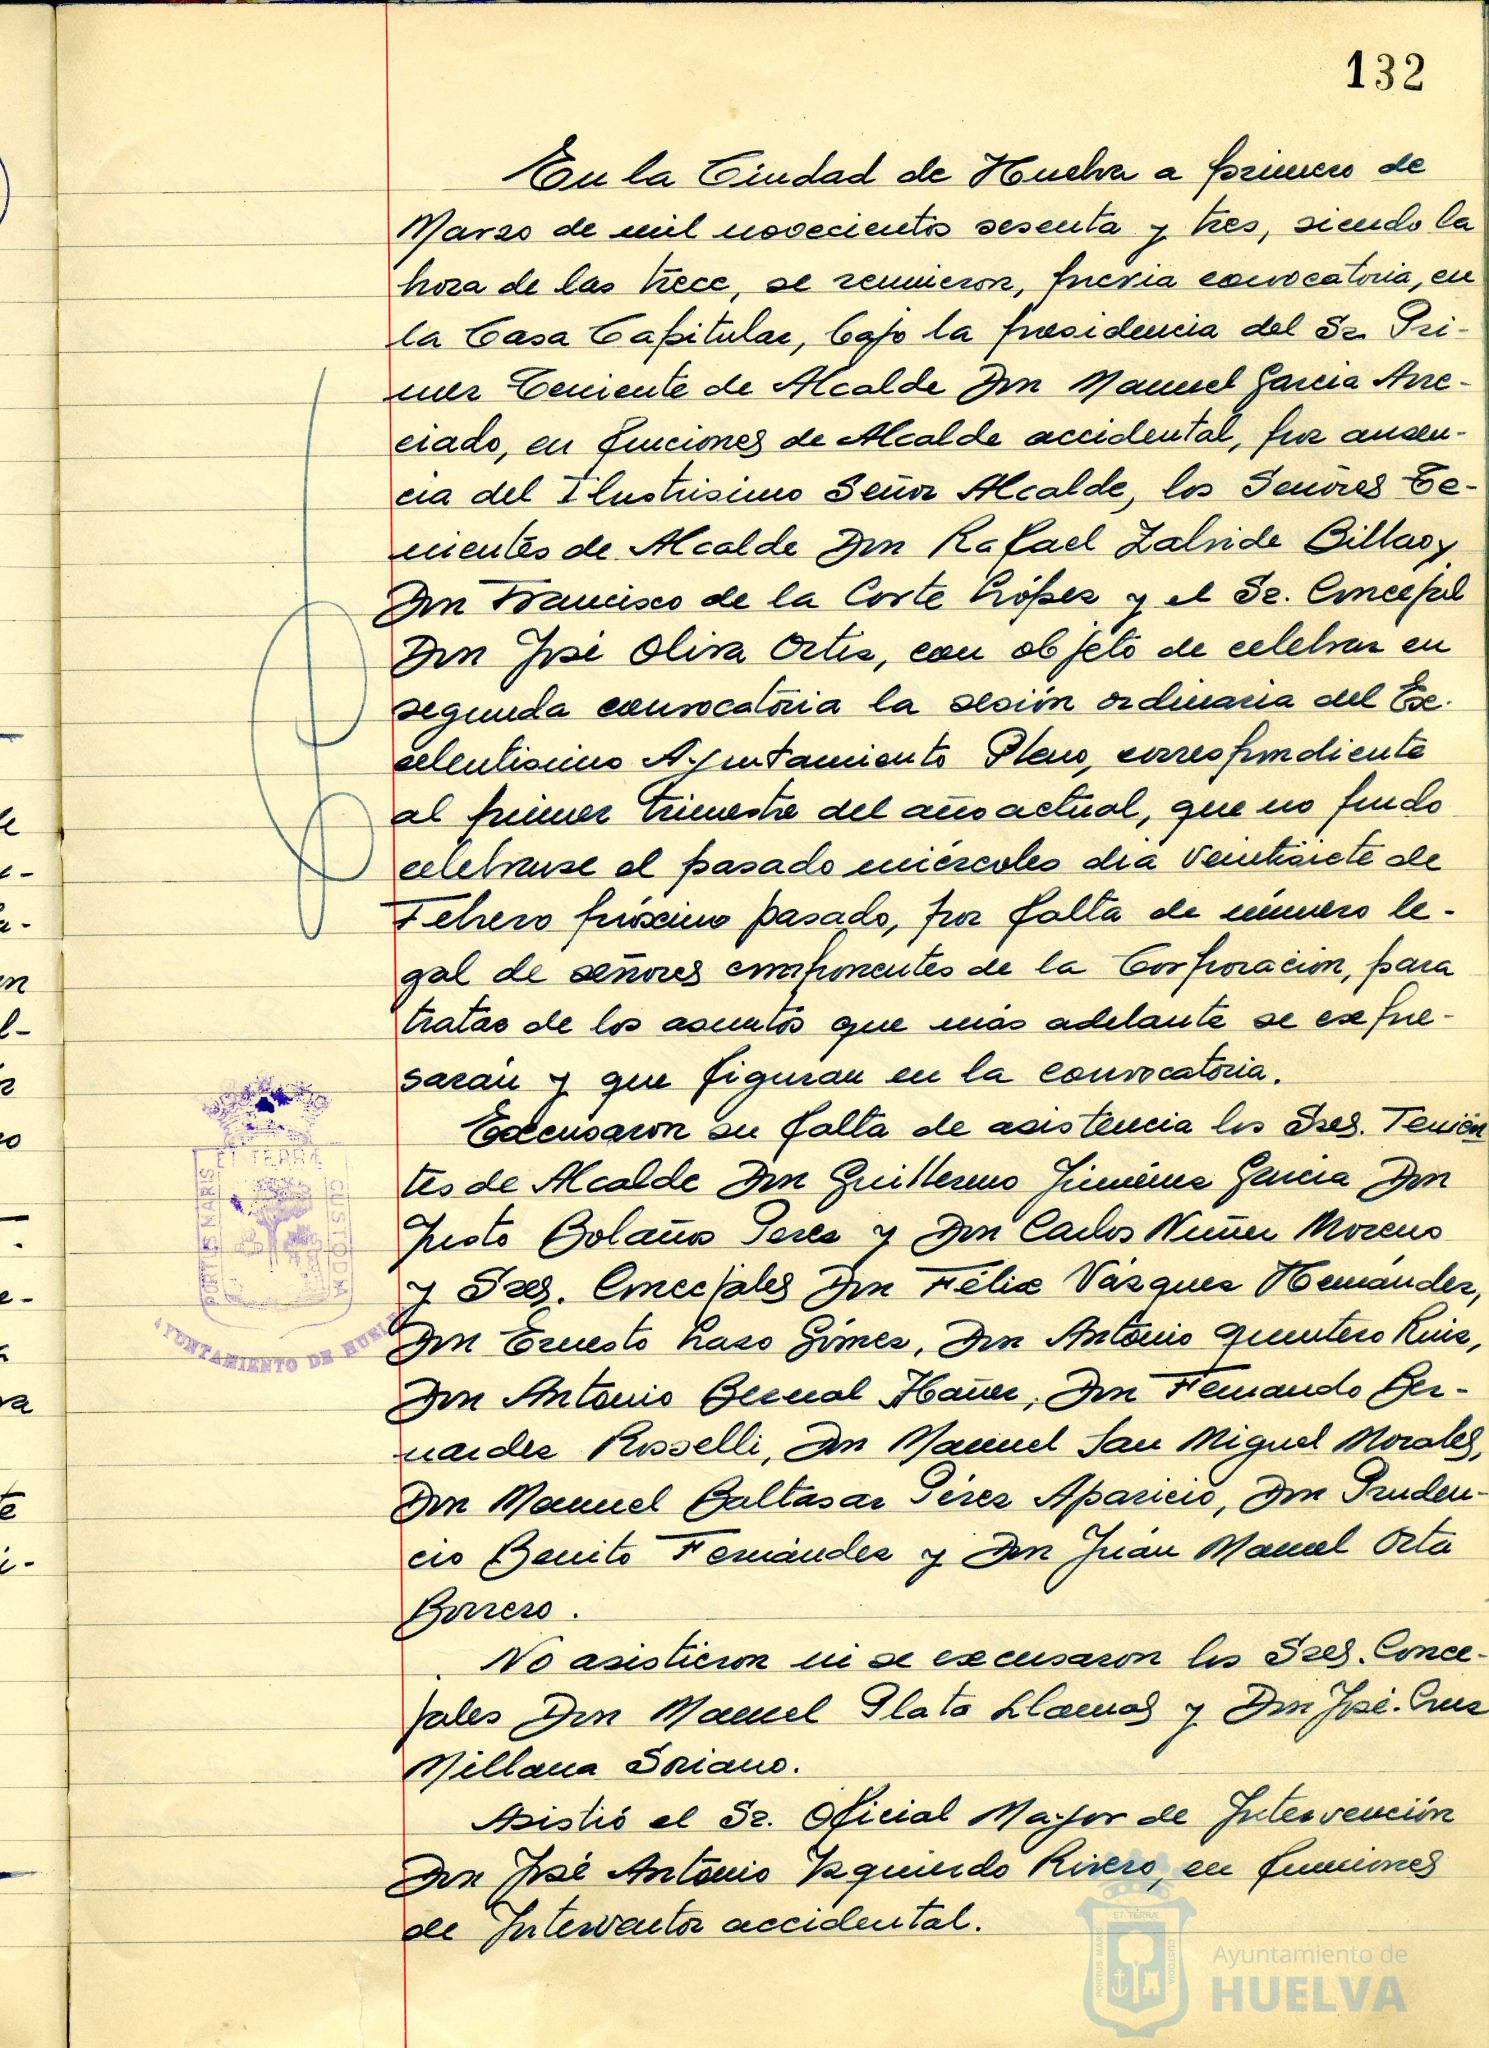 132
En la Ciudad de Huelva a primero de
Marzo de mil novecientos sesenta y tres, siendo la
hora de las trece, se reunieron, previa convocatoria, en
la Casa Capitular, bajo la presidencia del Sr. Pri-
mer Teniente de Alcalde Don Manuel Garcia Arre-
ciado, en funciones de Alcalde accidental, por ausen-
cia del Ilustrisimo Señor Alcalde, los Señores Te-
nientes de Alcalde Don Rafael Zalvide Bilbao y
Don Francisco de la Corte López y el Sr. Concejal
Don José Oliva Ortiz, con objeto de celebrar en
segunda convocatoria la sesión ordinaria del Ex-
celentisimo Ayuntamiento Pleno, correspondiente
al primer trimestre del año actual, que no pudo
celebrarse el pasado miércoles dia veintisiete de
Febrero próximo pasado, por falta de número le-
gal de señores componentes de la Corporación, para
tratar de los asuntos que más adelante se expre-
sarán y que figuran en la convocatoria.
Excusaron su falta de asistencia los Sres. Tenien
tes de Alcalde Don Guillermo Jiménez Garcia Don
Justo Bolaños Perez y Don Carlos Nuñez Moreno
y Sres. Concejales Don Félix Vázquez Hernández,
Don Ernesto Lazo Gómez, Don Antonio Quintero Ruiz,
Don Antonio Bernal Ibañez, Don Fernando Ber-
nardez Rosselli, Don Manuel San Miguel Morales,
Don Manuel Baltasar Pérez Aparicio, Don Pruden-
cio Benito Fernández y Don Juán Manuel Orta
Borrero.
No asistieron ni se excusaron los Sres. Conce-
jales Don Manuel Plata Llamas y Don José Cruz
Millana Soriano.
Asistió el Sr. Oficial Mayor de Intervención
Don José Antonio Izquierdo Rivero, en funciones
de Interventor accidental.
PORTUS MARIS ET TERRÆ CUSTODIA
AYUNTAMIENTO DE HUELVA
PORTUS MARIS ET TERRÆ CUSTODIA
Ayuntamiento de
HUELVA